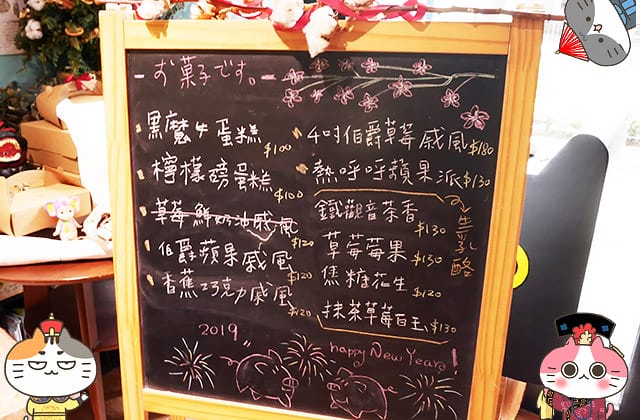 お菓子です。
黑魔牛蛋糕 $100
檸檬磅蛋糕 $100
草莓鮮奶油戚風 $120
伯爵蘋果戚風 $120
香蕉巧克力戚風 $120
4吋伯爵草莓戚風 $180
熱呼呼蘋果派 $130
生乳酪
鐵觀音茶香 $130
草莓莓果 $130
焦糖花生 $120
抹茶草莓白玉 $130
2019
happy New Years!